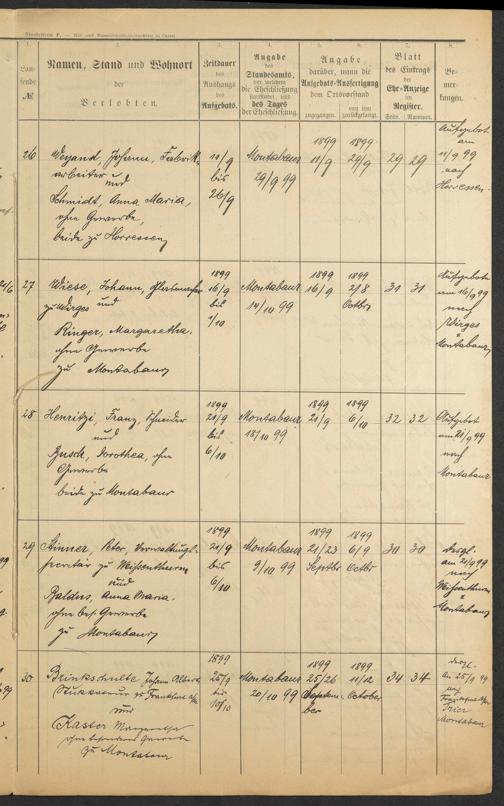 1.
2.
3.
4.
5.
6.
7.
8.
Lau-
fende
№
Namen, Stand und Wohnort
der
Verlobten.
Zeitdauer
des
Aushangs
des
Aufgebots.
Angabe
des
Standesamts,
vor welchem
die Eheschließung
stattfindet, und
des Tages
der Eheschließung.
Angabe
darüber, wann die
Aufgebots-Ausfertigung
dem Ortsvorstand
zugegangen.
von ihm
zurückgelangt.
Blatt
des Eintrags
der
Ehe-Anzeige
im
Register.
Seite. Nummer.
Be-
mer-
kungen.
26
Weyand, Johann, Fabrik-
arbeiter und
Schmidt, Anna Maria,
ohne Gewerbe,
beide zu Horressen
11/9
bis
26/9
Montabaur
29/9 99
1899
11/9
1899
29/9
29 29
Aufgebot
am
11/9 99
nach
Horressen.
27
Wiese, Johann,
zu Wirges und
Ringer, Margaretha.
ohne Gewerbe
zu Montabaur
1899
16/9
bis
1/10
Montabaur
14/10 99
1899
16/9
1899
2/8
Octbr
31 31
Aufgebot
am 16/9 99
nach
Wirges
Montabaur
28
Henritzi, Franz, Schneider
und
Busch, Dorothea, ohne
Gewerbe
beide zu Montabaur
1899
21/9
bis
6/10
Montabaur
18/10 99
1899
21/9
1899
6/10
32 32
Aufgebot
am 21/9 99
nach
Montabaur
29
Peter, Verwaltungs-
secretär zu Weissenthurm
und
Balders, Anna Maria.
ohne bes. Gewerbe
zu Montabaur
1899
21/9
bis
6/10
Montabaur
9/10 99
1899
21/23
Septbr
1899
6/9
Octbr
30 30
desgl.
am 21/9 99
nach
Weissenthurm
Montabaur
30
Brinkschulte, Johann Albert
zu Frankfurt a/M
und
Kasser Margaretha
ohne besonderes Gewerbe
zu Montabaur
1899
25/9
bis
10/10
Montabaur
20/10 99
1899
25/26
Septem-
ber
1899
11/12
October
34 34
desgl.
am 25/9 99
nach
Frankfurt a/M
Trier
Montabaur